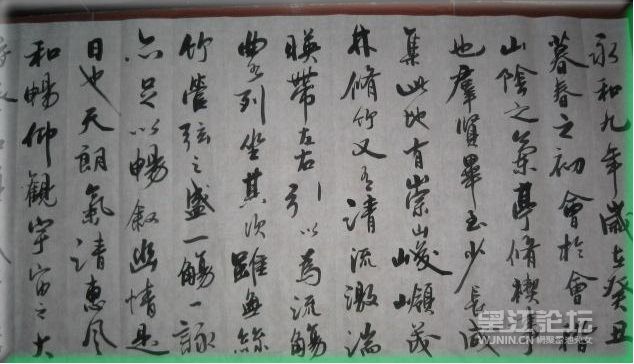 永和九年歲在癸丑
暮春之初會於會
山陰之蘭亭脩禊事
也羣賢畢至少長咸
集此地有崇山峻嶺茂
林脩竹又有清流激湍
暎帶左右引以為流觴
曲水列坐其次雖無絲
竹管弦之盛一觴一詠
亦足以暢敘幽情是
日也天朗氣清惠風
和暢仰觀宇宙之大
望江論坛
WJNIN.COM 網聚雷池儿女